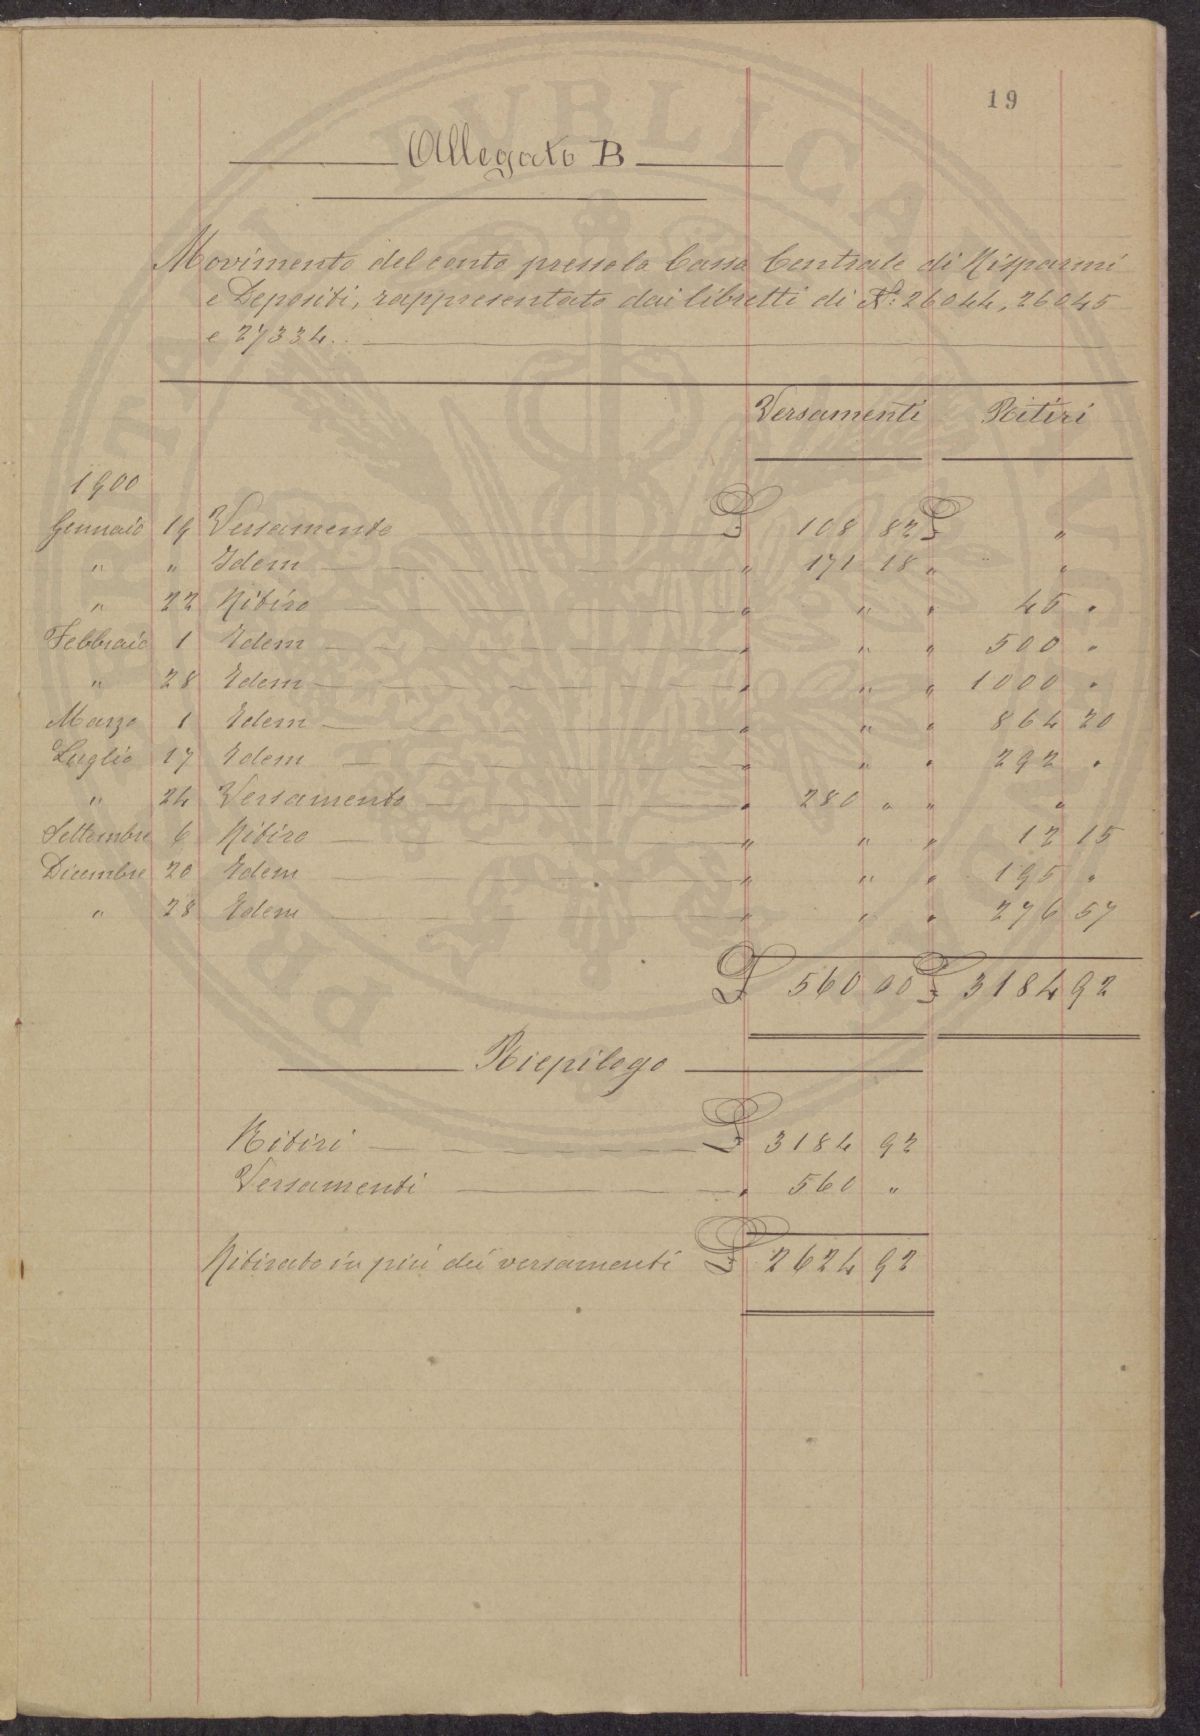 19
Allegato B
Movimento del conto presso la Cassa Centrale di Risparmi
e Depositi, rappresentato dai libretti di N: 26044, 26045
e 27334.
Versamenti Ritiri
1900
Gennaio 19 Versamento £ 108 82 £ "
" " Idem " 171 18 " "
" 22 Ritiro " " " 45 "
Febbraio 1 Idem " " " 500 "
" 28 Idem " " " 1000 "
Marzo 1 Idem " " " 864 20
Luglio 17 Idem " " " 292 "
" 24 Versamento " 280 " " "
Settembre 6 Ritiro " " " 12 15
Dicembre 20 Idem " " " 195 "
" 28 Idem " " " 276 57
£ 560 00 £ 3184 92
Riepilogo
Ritiri £ 3184 92
Versamenti " 560 "
Ritirato in più dei versamenti £ 2624 92